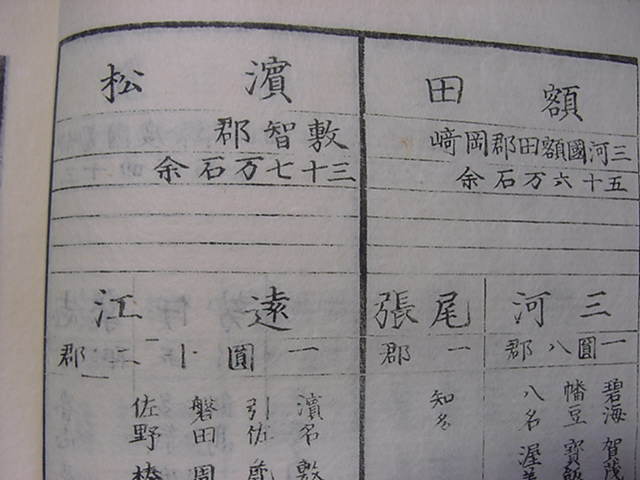 額田
三河國額田郡岡﨑
五十六万石余
三河
一圓八郡
碧海 賀茂
幡豆 寶飯
八名 渥美
尾張
一郡
知多
濱松
敷智郡
三十七万石余
遠江
一圓十二郡
濱名 敷
引佐
磐田 周
佐野